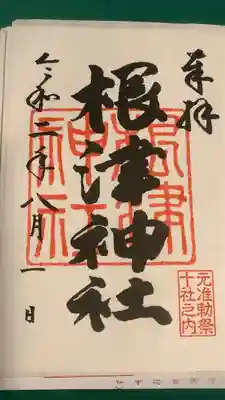 奉拝
根津神社
根津
神社
元准勅祭
十社之内
令和二年八月一日